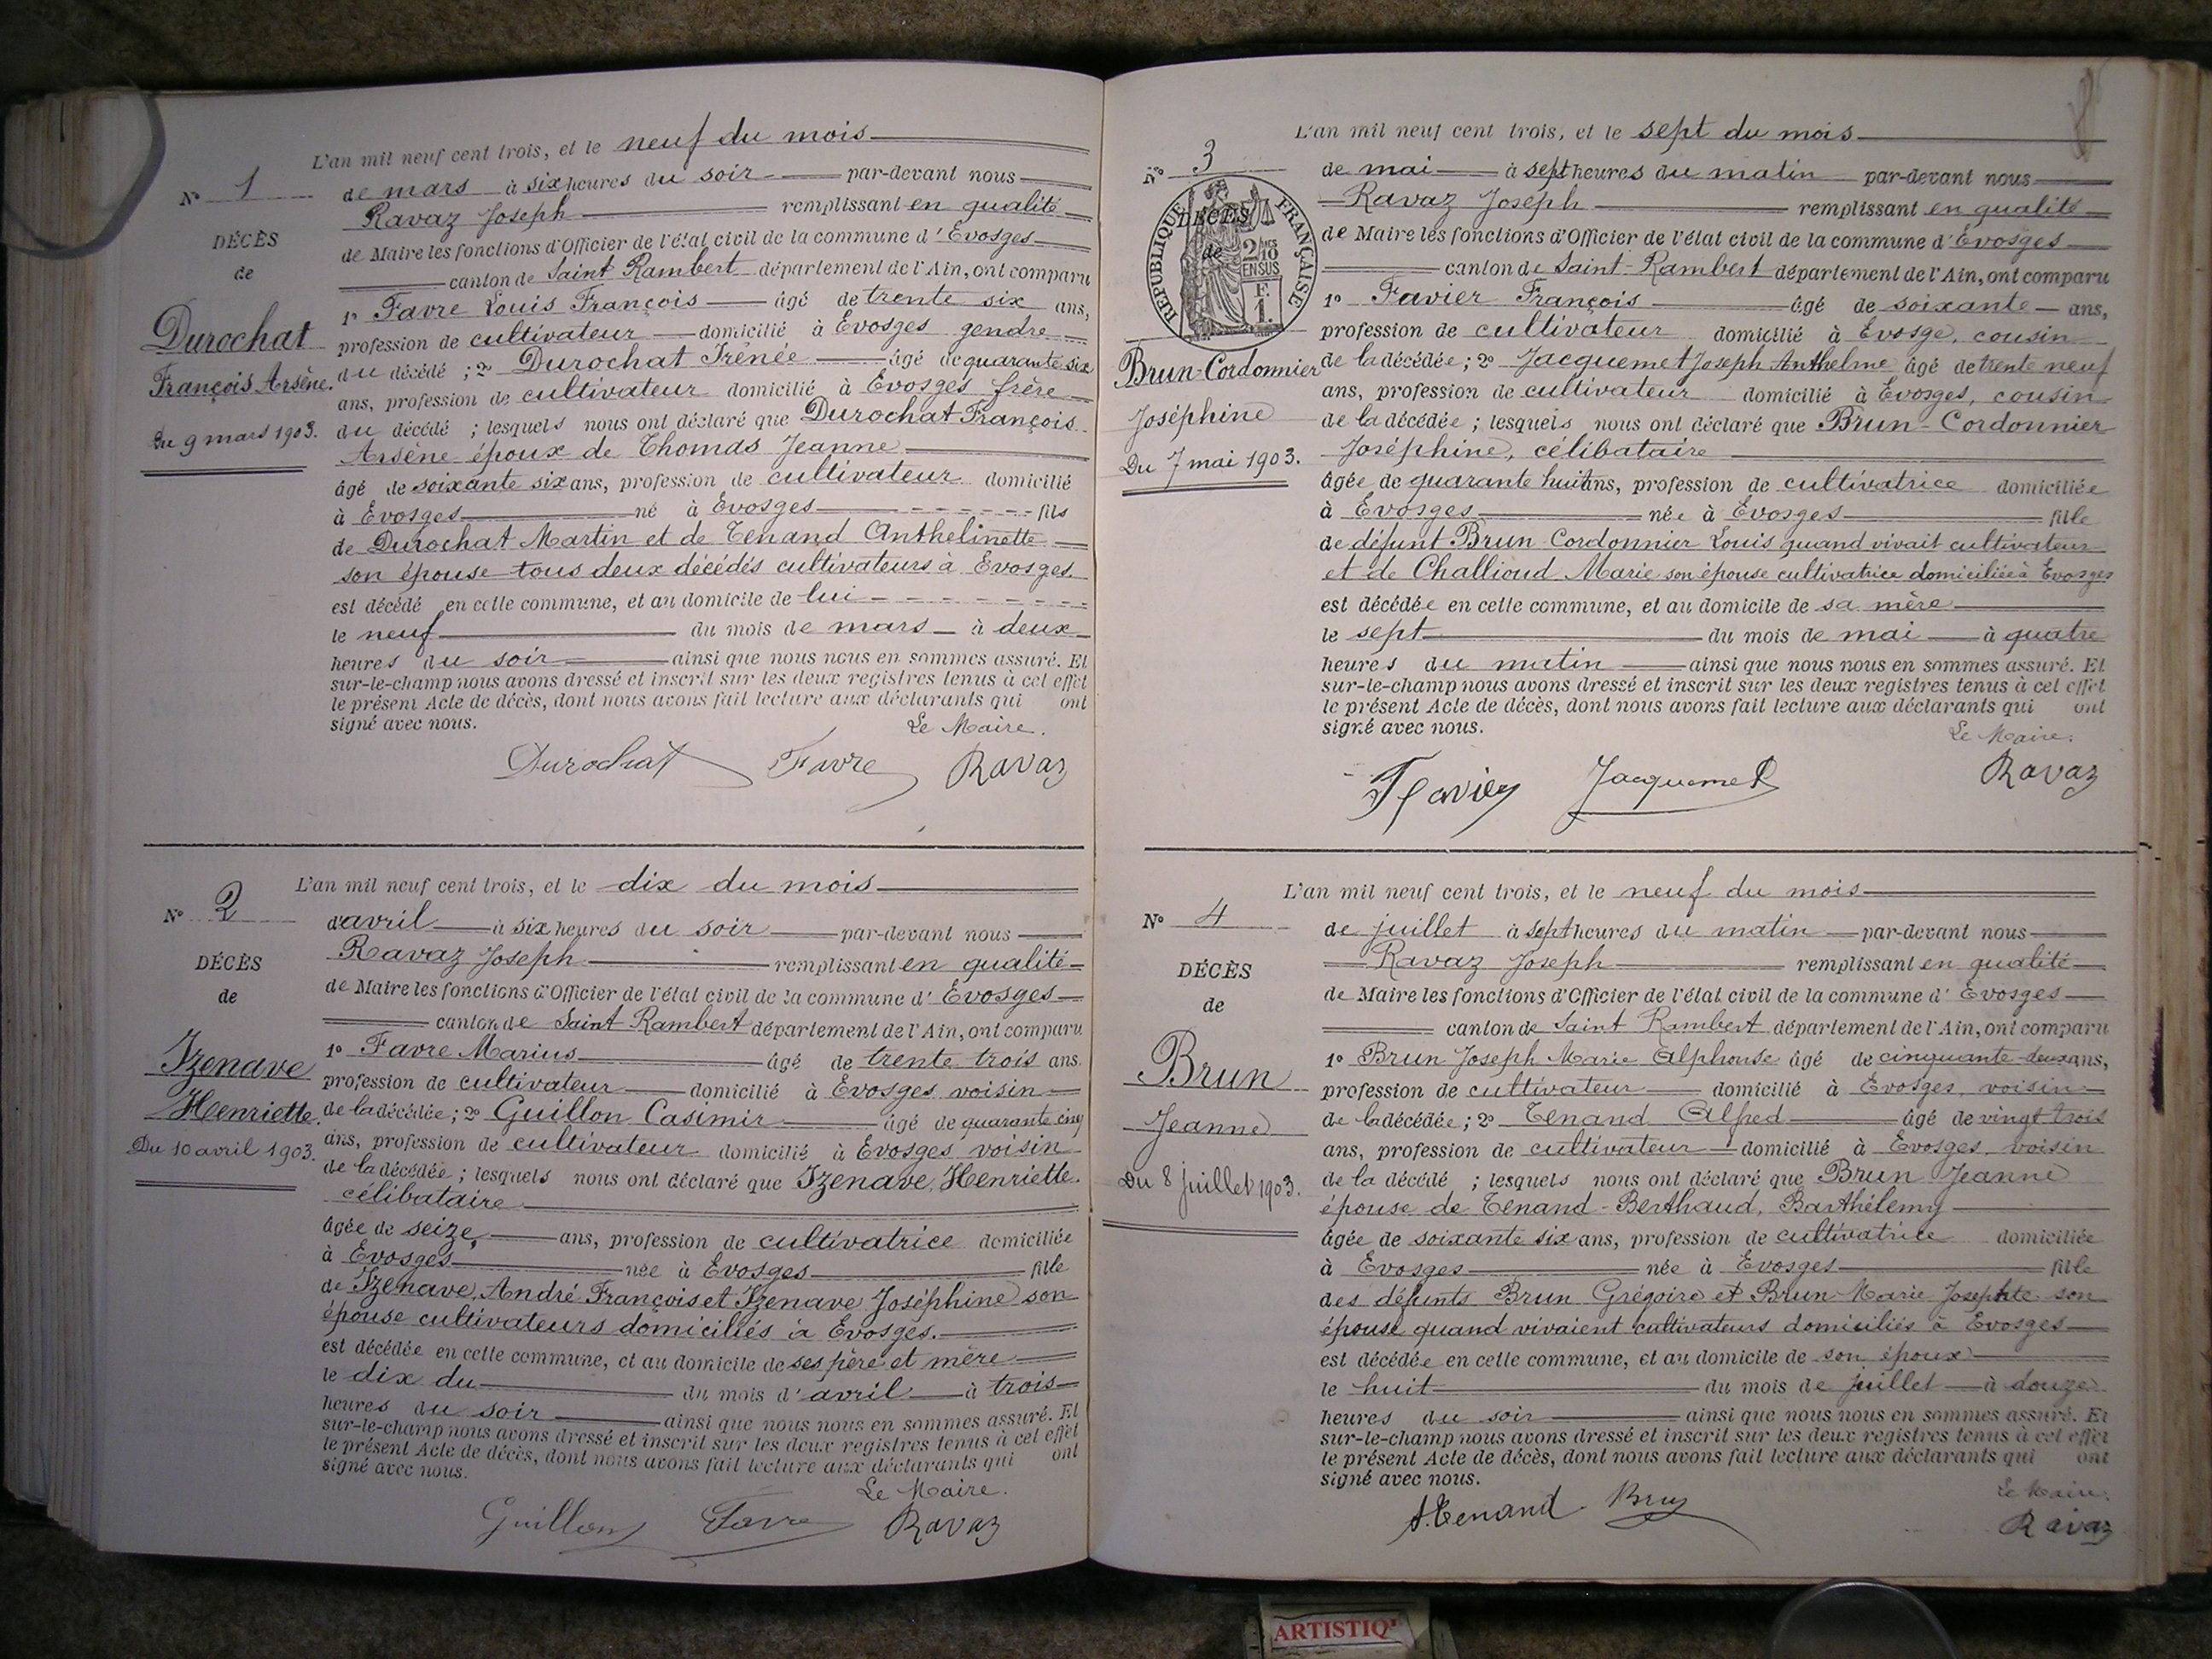 L'an mil neuf cent trois, et le neuf du mois
N° 1
de mars à six heures du soir par-devant nous
Ravaz Joseph remplissant en qualité
DÉCÈS
de Maire les fonctions d'Officier de l'état civil de la commune d'Evosges
de
canton de Saint Rambert département de l'Ain, ont comparu
1° Favre Louis François âgé de trente six ans,
Durochat
profession de cultivateur domicilié à Evosges gendre
François Arsène.
du décédé ; 2° Durochat Irénée âgé de quarante six
ans, profession de cultivateur domicilié à Evosges frère
Du 9 mars 1903.
du décédé ; lesquels nous ont déclaré que Durochat François
Arsène époux de Thomas Jeanne
âgé de soixante six ans, profession de cultivateur domicilié
à Evosges né à Evosges fils
de Durochat Martin et de Tenand Anthelinette
son épouse tous deux décédés cultivateurs à Evosges.
est décédé en cette commune, et au domicile de lui
le neuf du mois de mars à deux
heures du soir ainsi que nous nous en sommes assuré. Et
sur-le-champ nous avons dressé et inscrit sur les deux registres tenus à cet effet
le présent Acte de décès, dont nous avons fait lecture aux déclarants qui ont
signé avec nous.
Le Maire.
Durochat Favre Ravaz
L'an mil neuf cent trois, et le dix du mois
N° 2
d'avril à six heures du soir par-devant nous
Ravaz Joseph remplissant en qualité
DÉCÈS
de Maire les fonctions d'Officier de l'état civil de la commune d'Evosges
de
canton de Saint Rambert département de l'Ain, ont comparu
1° Favre Marius âgé de trente trois ans.
Izenave
profession de cultivateur domicilié à Evosges voisin
Henriette.
de la décédée ; 2° Guillon Casimir âgé de quarante cinq
ans, profession de cultivateur domicilié à Evosges voisin
Du 10 avril 1903.
de la décédée ; lesquels nous ont déclaré que Izenave, Henriette.
célibataire
âgée de seize, ans, profession de cultivatrice domiciliée
à Evosges née à Evosges fille
de Izenave, André François et Izenave Joséphine son
épouse cultivateurs domiciliés à Evosges.
est décédée en cette commune, et au domicile de ses père et mère
le dix du du mois d'avril à trois
heures du soir ainsi que nous nous en sommes assuré. Et
sur-le-champ nous avons dressé et inscrit sur les deux registres tenus à cet effet
le présent Acte de décès, dont nous avons fait lecture aux déclarants qui ont
signé avec nous.
Le Maire.
Guillon Favre Ravaz
L'an mil neuf cent trois, et le sept du mois
N° 3
de mai à sept heures du matin par-devant nous
Ravaz Joseph remplissant en qualité
DÉCÈS
de
RÉPUBLIQUE FRANÇAISE
2 10
EN SUS
F.
1.
de Maire les fonctions d'Officier de l'état civil de la commune d'Evosges
canton de Saint-Rambert département de l'Ain, ont comparu
1° Favier François âgé de soixante ans,
profession de cultivateur domicilié à Evosge, cousin
Brun-Cordonnier
de la décédée ; 2° Jacquemet Joseph Anthelme âgé de trente neuf
ans, profession de cultivateur domicilié à Evosges, cousin
Joséphine
de la décédée ; lesquels nous ont déclaré que Brun-Cordonnier
Du 7 mai 1903.
Joséphine, célibataire
âgée de quarante huit ans, profession de cultivatrice domiciliée
à Evosges née à Evosges fille
de défunt Brun-Cordonnier Louis quand vivait cultivateur
et de Challioud Marie son épouse cultivatrice domiciliée à Evosges
est décédée en cette commune, et au domicile de sa mère
le sept du mois de mai à quatre
heures du matin ainsi que nous nous en sommes assuré. Et
sur-le-champ nous avons dressé et inscrit sur les deux registres tenus à cet effet
le présent Acte de décès, dont nous avons fait lecture aux déclarants qui ont
signé avec nous.
Le Maire.
Favier Jacquemet Ravaz
L'an mil neuf cent trois, et le neuf du mois
N° 4
de juillet à sept heures du matin par-devant nous
Ravaz Joseph remplissant en qualité
DÉCÈS
de Maire les fonctions d'Officier de l'état civil de la commune d'Evosges
de
canton de Saint Rambert département de l'Ain, ont comparu
1° Brun Joseph Marie Alphonse âgé de cinquante deux ans,
Brun
profession de cultivateur domicilié à Evosges, voisin
de la décédée ; 2° Tenand Alfred âgé de vingt trois
Jeanne
ans, profession de cultivateur domicilié à Evosges, voisin
Du 8 juillet 1903.
de la décédé ; lesquels nous ont déclaré que Brun Jeanne
épouse de Tenand-Berthaud, Barthélemy
âgée de soixante six ans, profession de cultivatrice domiciliée
à Evosges née à Evosges fille
des défunts Brun Grégoire et Brun Marie Josephte son
épouse quand vivaient cultivateurs domiciliés à Evosges
est décédée en cette commune, et au domicile de son époux
le huit du mois de juillet à douze
heures du soir ainsi que nous nous en sommes assuré. Et
sur-le-champ nous avons dressé et inscrit sur les deux registres tenus à cet effet
le présent Acte de décès, dont nous avons fait lecture aux déclarants qui ont
signé avec nous.
Le Maire.
A. Tenand Brun Ravaz
ARTISTIQ